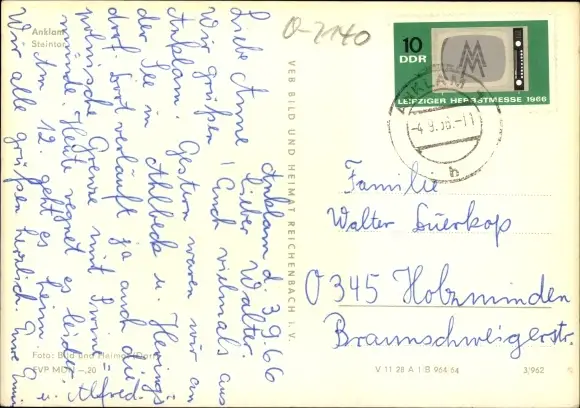 Anklam
Steintor
Anklam d. 3.9.66
Liebe Anne, Lieber Walter.
Wir grüßen Euch vielmals aus
Anklam! Gestern waren wir an
der See in Ahlbeck u. Herings
dorf. Dort verläuft ja auch die
polnische Grenze mit Swine-
münde. Heute regnet es leider.
Am 12. geht es heim.
Wir alle grüßen herzlich. Eure
Alfred
VEB BILD UND HEIMAT REICHENBACH i. V.
O-2140
10
DDR
MM
LEIPZIGER HERBSTMESSE 1966
ANKLAM
-4.9.66.-11
h
Familie
Walter Düerkop
0345 Holzminden
Braunschweigerstr.
Foto: Bild und Heimat
EVP MDN -,20
V 11 28 A 1 B 964 64
3/962